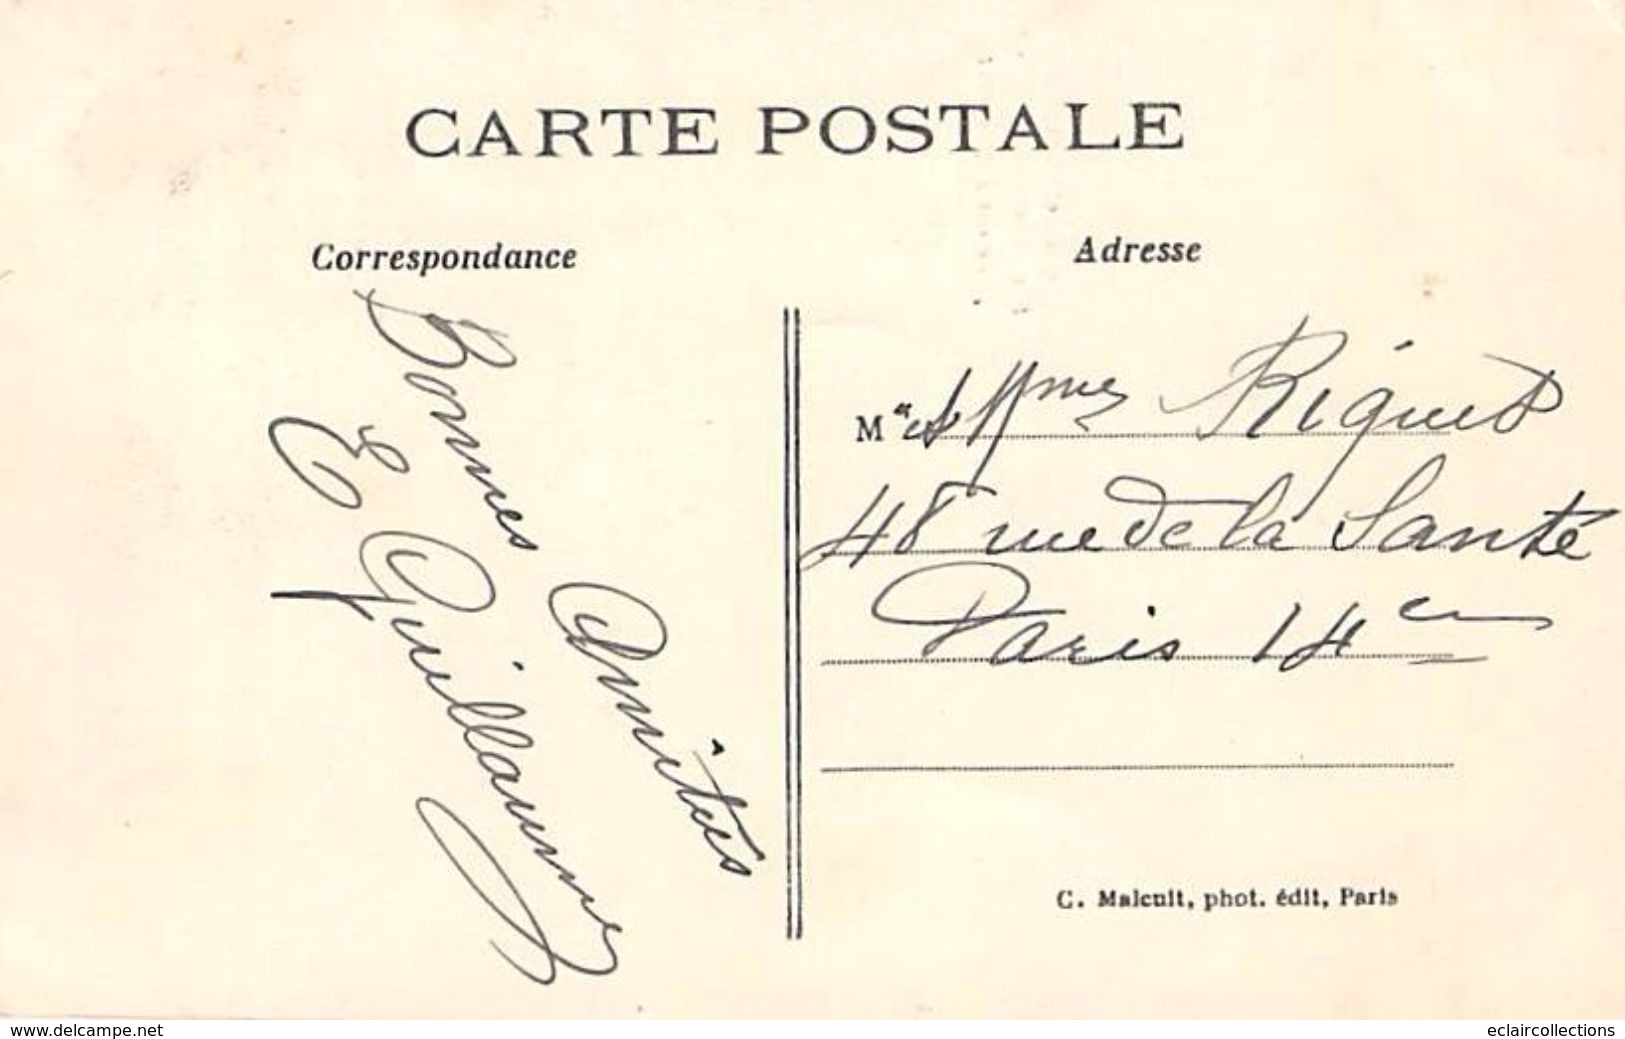 CARTE POSTALE
Correspondance
Bonnes Amités
E Guillaume
Adresse
M et Mme Rigued
48 rue de la Santé
Paris 14 em
C. Malcuit, phot. édit, Paris
www.delcampe.net
eclaircollections